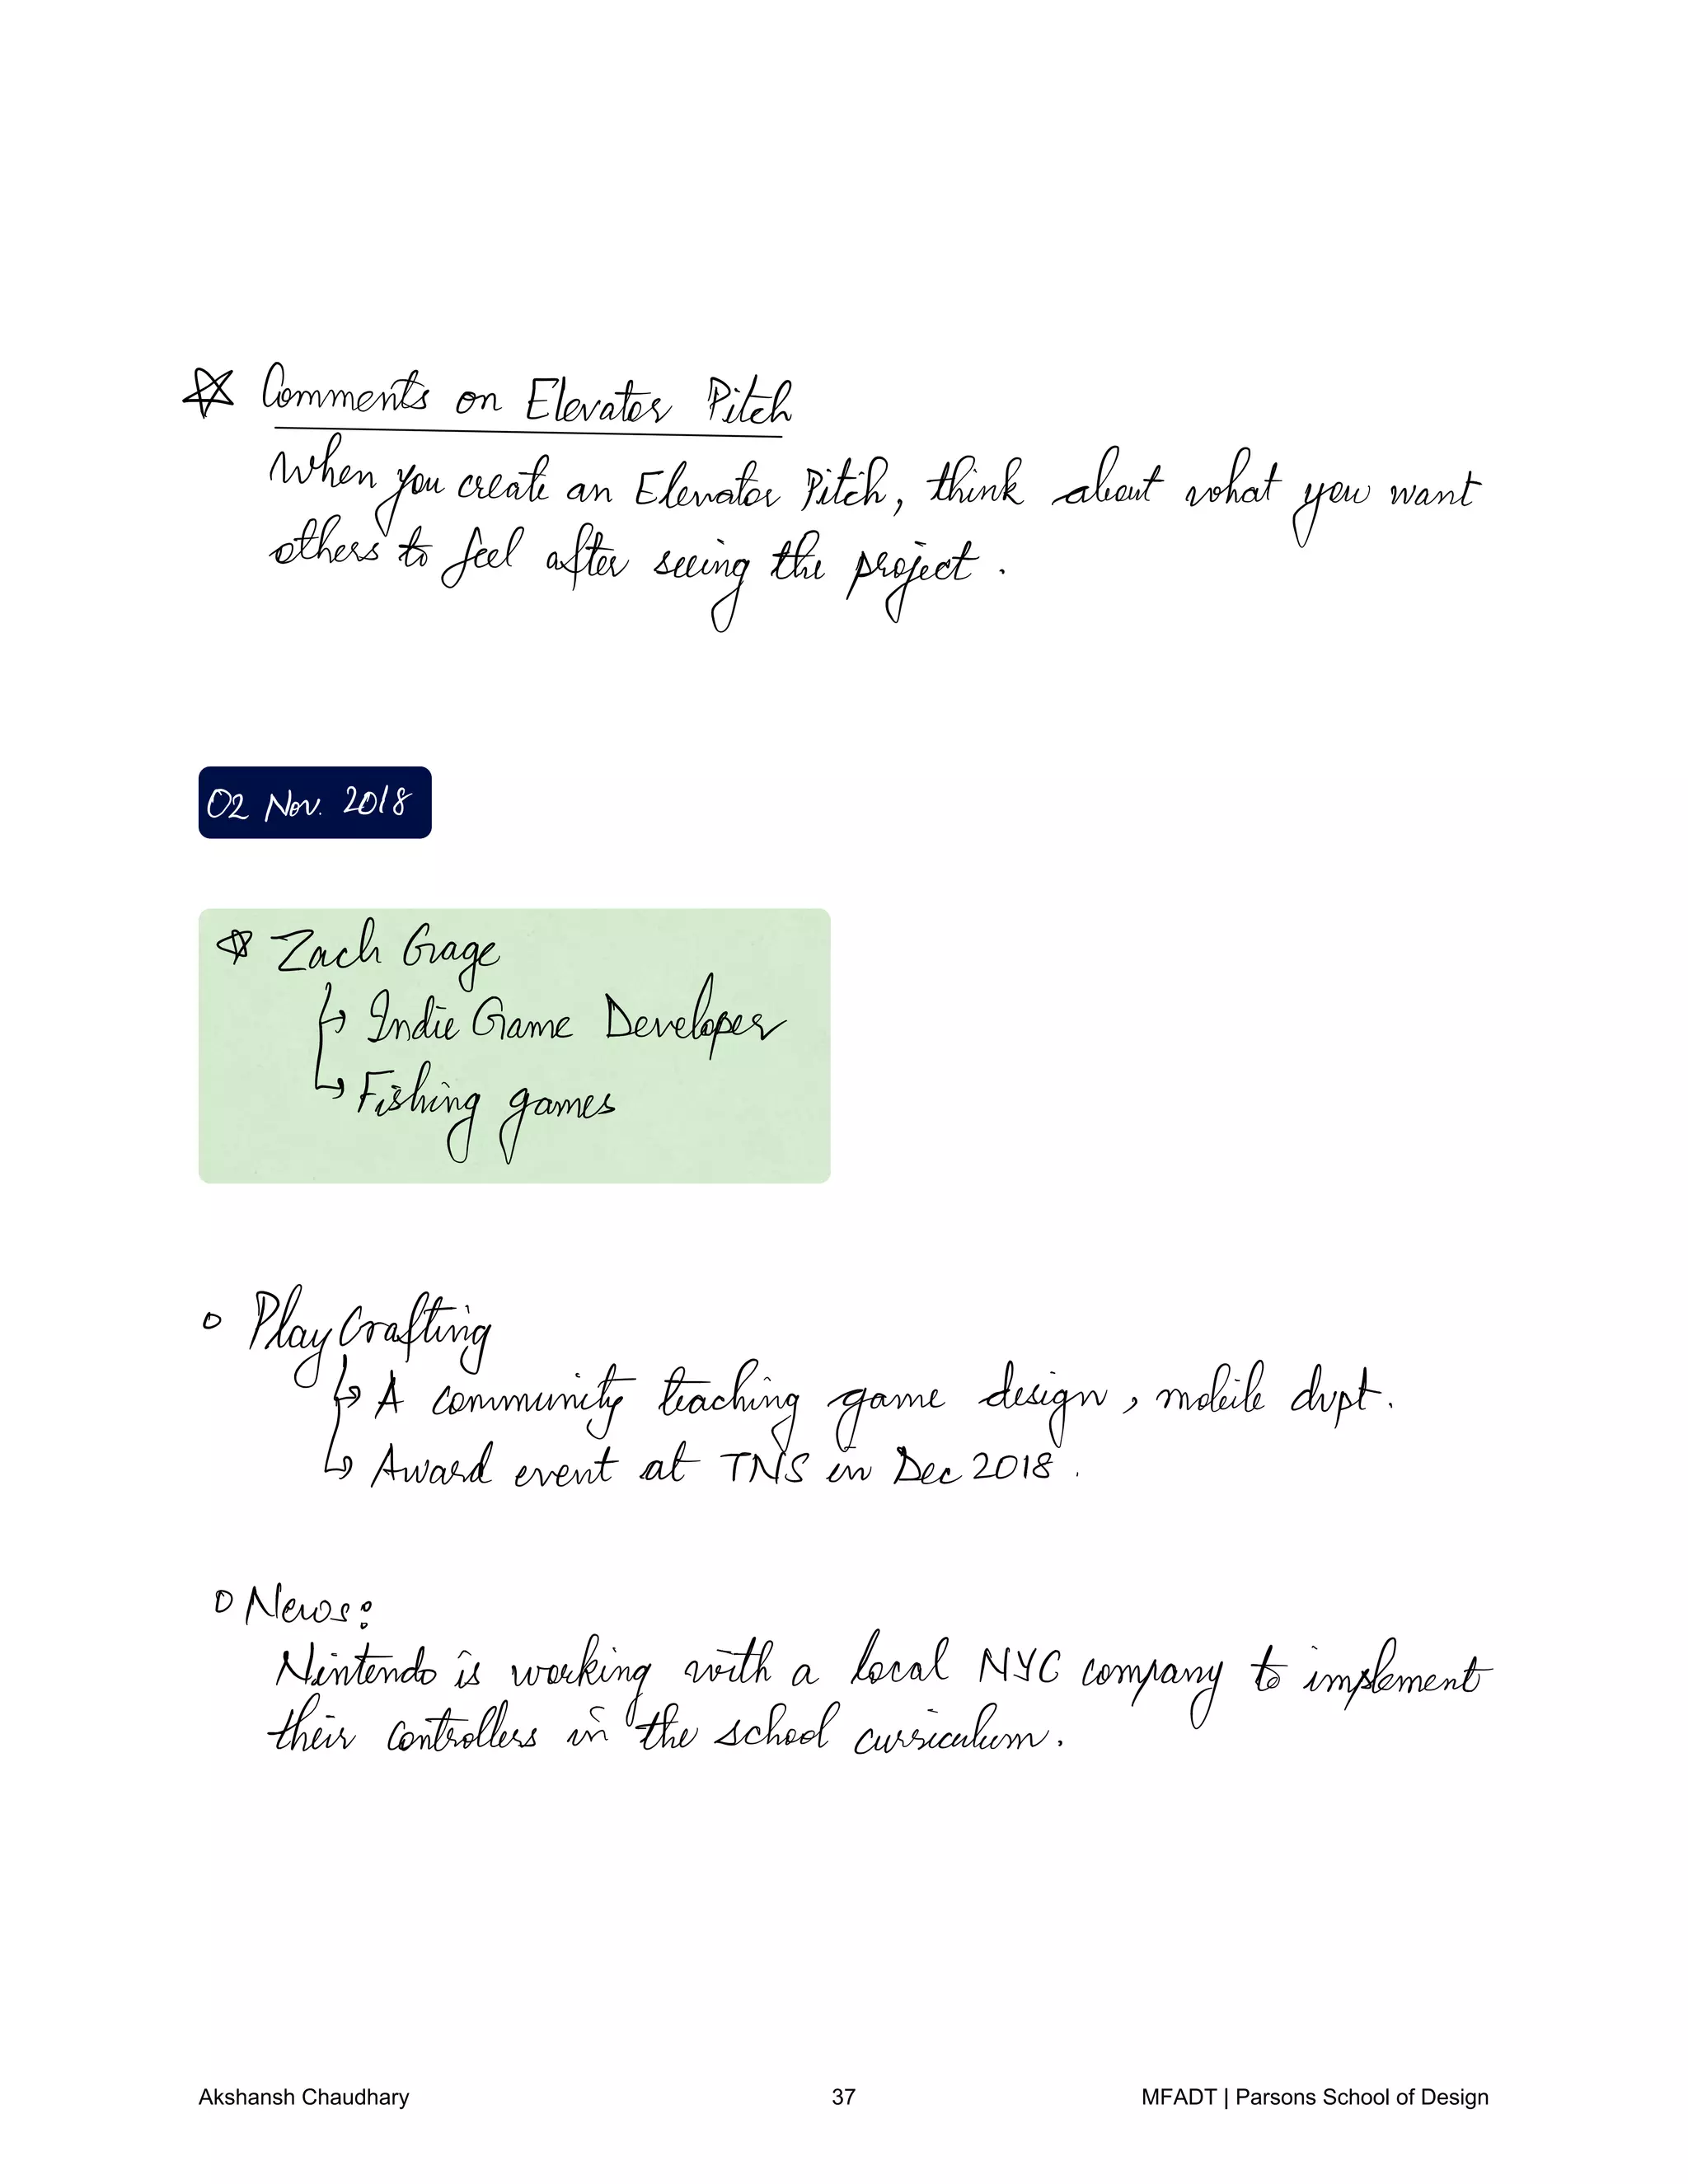 ☆ Comments on Elevator Pitch
When you create an Elevator Pitch, think about what you want
others to feel after seeing the project.
02 Nov. 2018
☆ Zach Gage
↳ Indie Game Developer
↳ Fishing games
○ Play Crafting
↳ A community teaching game design, mobile dvpt.
↳ Award event at TNS in Dec 2018.
○ News:
Nintendo is working with a local NYC company to implement
their controllers in the school curriculum.
Akshansh Chaudhary 37 MFADT | Parsons School of Design